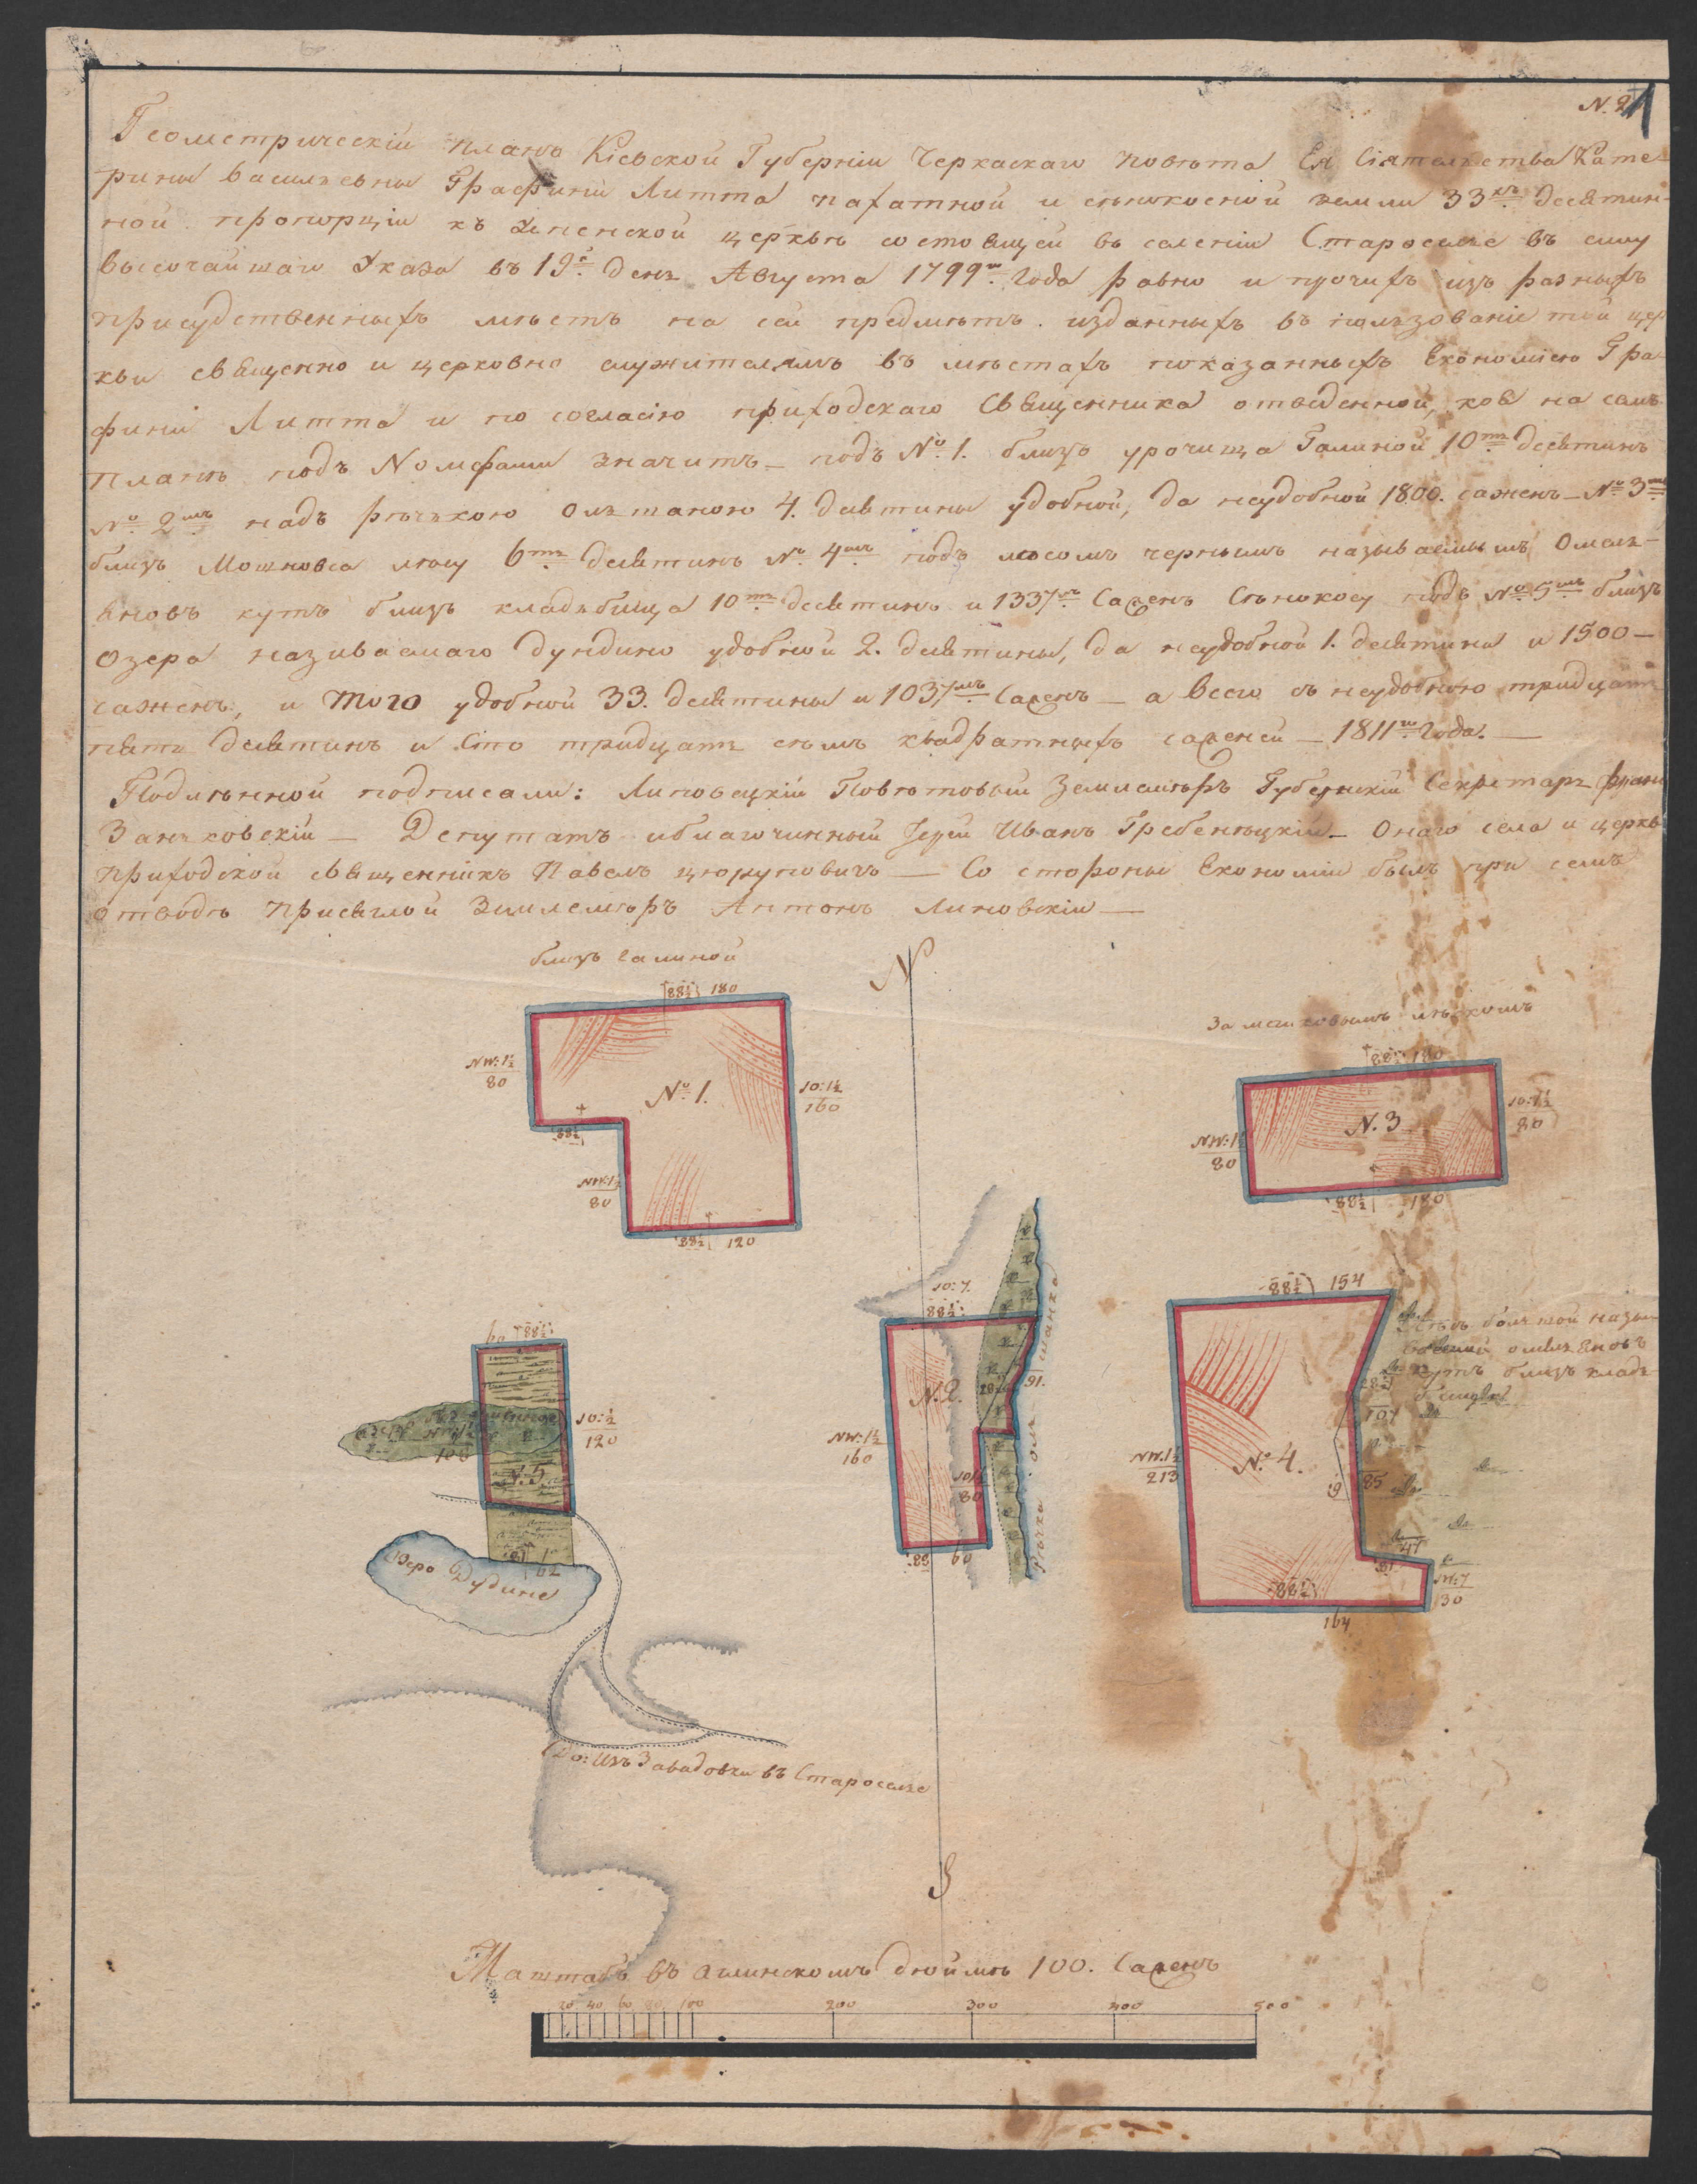 N. 2
Геометрическій планъ Кіевской Губерніи Черкаскаго повѣта Ея Сіятельства Кате-
рины Васильевны Графини Литта пахатной и сѣнокосной земли 33хъ десятин-
ной пропорціи къ Успенской церквѣ состоящей въ селеніи Староселье въ силу
высочайшаго Указа въ 19й день Августа 1799го года равно и прочихъ изъ разныхъ
присудственныхъ мѣстъ на сей предмѣтъ изданныхъ въ ползованіе той цер
кви священно и церковно служителямъ въ мѣстахъ показанныхъ Економіею Гра-
фини Литта и по согласію приходскаго Священника отведенной, коя на семъ
планѣ подъ Номерами значитъ – подъ № 1. близъ урочища Галиной 10ть десятинъ
№ 2мъ надъ рѣчкою Олшаною 4. десятины удобной, да неудобной 1800. сажень – № 3мъ
близъ Мошновса лѣсу 6ть десятинъ № 4мъ подъ лѣсомъ чернымъ називаемымъ Омель-
яновъ кутъ близъ кладьбища 10ть десятинъ и 1337мъ саженъ сѣнокосу подъ № 5мъ близъ
Озера називаемаго Дундино удобной 2. десятины, да неудобной 1. десятина и 1500 –
сажень, и того удобной 33. десятины и 1037мъ саженъ – а всего съ неудобною тридцать
пять десятинъ и сто тридцать семъ квадратныхъ саженей – 1811го года. –
Подлѣнной подписали: Липовецкій Повѣтовый Землемѣръ Губернскій Секретарь Фран
Занковскій – Депутатъ и благочинный Іерей Иванъ Гребенѣцкій – Онаго села и церкв
приходской священнікъ Павелъ Цюрупович – Со стороны Економіи былъ при семъ
отводѣ присяглой Землемѣръ Антонъ Линовскій –
близъ Галиной
N
88½ 180
NW: 1½
80
№ 1.
10: 1½
160
88½
NW: 1½
80
88½ 120
За машковымъ лѣскомъ
88½ 180
N. 3
10: 1½
80
NW: 1½
80
88½ 180
10: 7.
88½
N. 2.
91.
NW: 1½
160
10 1½
80
88 60
Рѣчка Олшанка
88½ 154
Лѣсъ болшой назы-
ваемій омельяновъ
кутъ близъ кладь
бища
107
NW. 1½
213
№ 4.
9
85
47
81
NW: 7
30
88½
164
60 88½
10: ½
120
100
5
81 62
Озеро Дудине
До: изъ Завадовки въ Староселье
S
Маштабъ въ аглинскомъ дюймѣ 100. саженъ
20 40 60 80 100 200 300 400 500